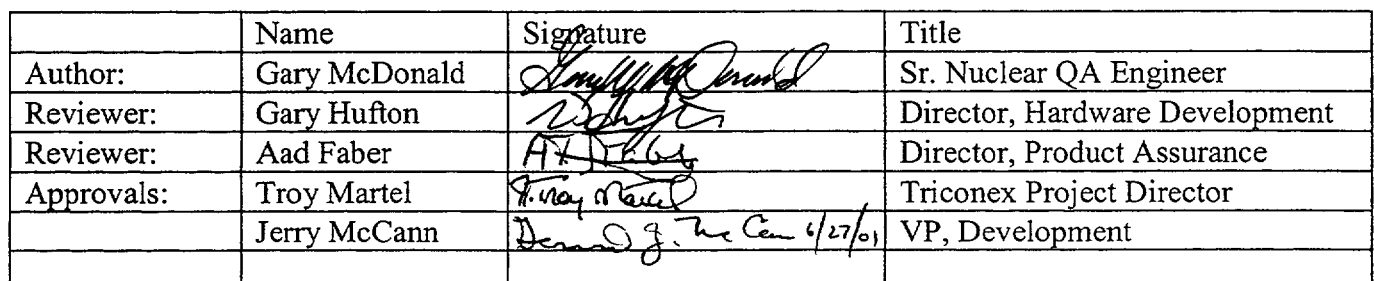 Name Signature Title
Author: Gary McDonald Sr. Nuclear QA Engineer
Reviewer: Gary Hufton Director, Hardware Development
Reviewer: Aad Faber Director, Product Assurance
Approvals: Troy Martel T. Troy Martel Triconex Project Director
Jerry McCann J. McCann 6/27/01 VP, Development